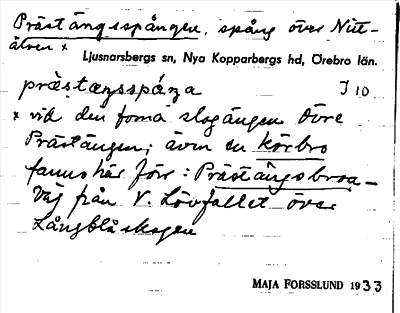 Prästängsspången, spång över Nitt-
älven x
Ljusnarsbergs sn, Nya Kopparbergs hd, Örebro län.
præstæŋsspåŋa J 10
x vid den forna slogången Övre
Prästängen; även en körbro
fanns här förr: Prästängsbroa –
Väg från V. Lövfallet över
Långblåskogen
MAJA FORSSLUND 1933